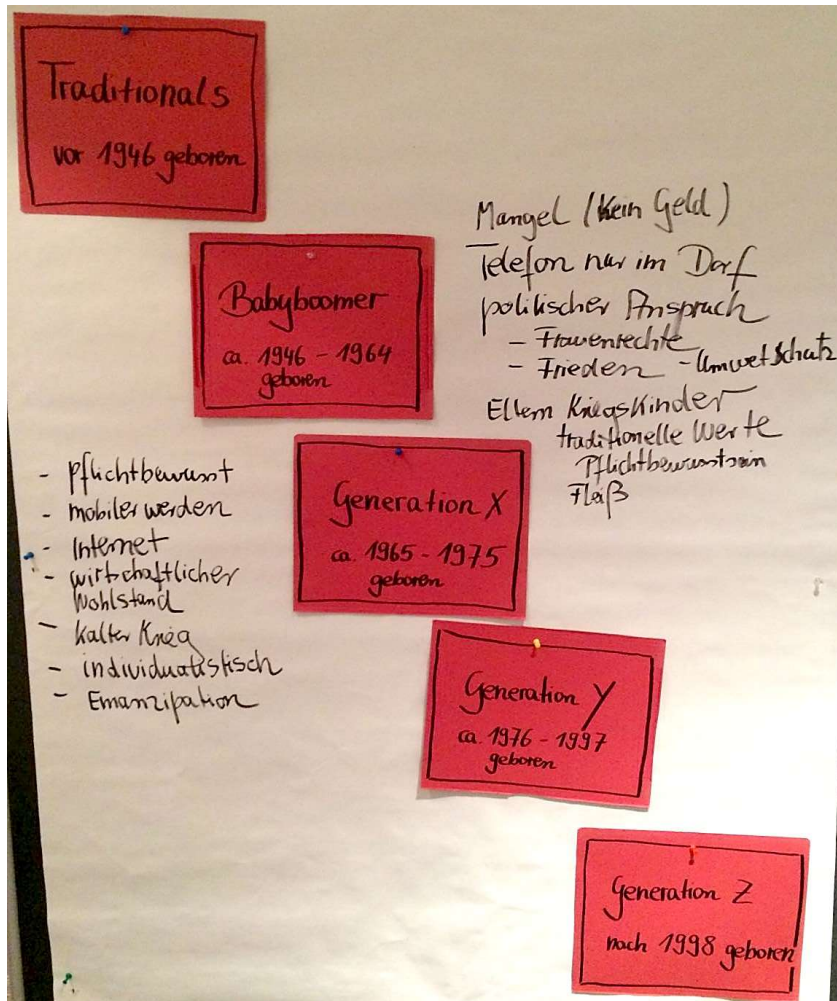 Traditionals
vor 1946 geboren
Babyboomer
ca. 1946 - 1964
geboren
Mangel (kein Geld)
Telefon nur im Dorf
politischer Anspruch
- Frauenrechte
- Frieden - Umwetschutz
Eltern Kriegskinder
traditionelle Werte
Pflichtbewusstsein
Fleiß
Generation X
ca. 1965 - 1975
geboren
- pflichtbewusst
- mobiler werden
- Internet
- wirtschaftlicher
Wohlstand
- Kalter Krieg
- individualistisch
- Emanzipation
Generation Y
ca. 1976 - 1997
geboren
Generation Z
nach 1998 geboren